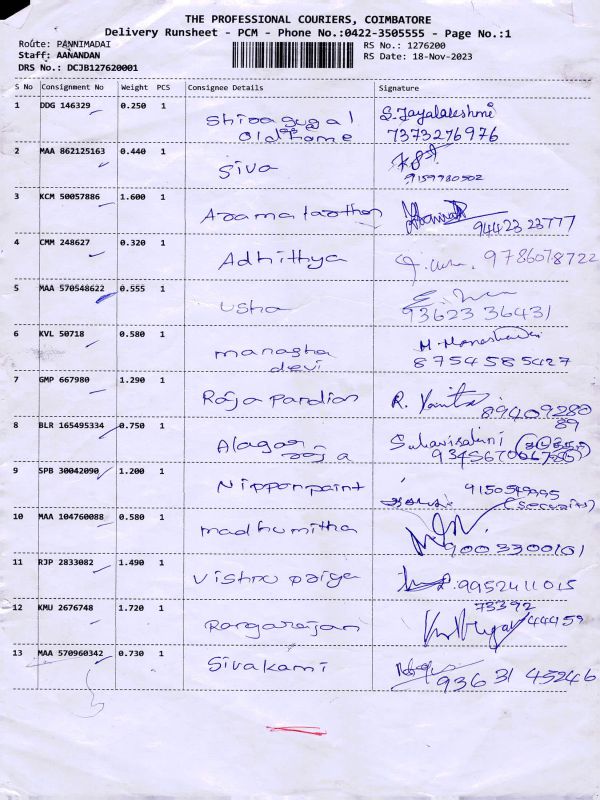 THE PROFESSIONAL COURIERS, COIMBATORE
Delivery Runsheet - PCM - Phone No.:0422-3505555 - Page No.:1
Route: PANNIMADAI RS No.: 1276200
Staff: AANANDAN RS Date: 18-Nov-2023
DRS No.: DCJB127620001
S No Consignment No Weight PCS Consignee Details Signature
1 DDG 146329 0.250 1 S. Jayalakshmi
old Home 7373276976
2 MAA 862125163 0.440 1 Siva
9159980502
3 KCM 50057886 1.600 1
94423 23777
4 CMM 248627 0.320 1 Adhithya 9786078722
5 MAA 570548622 0.555 1 Usha
93623 36431
6 KVL 50718 0.580 1 managha
devi 8754585427
7 GMP 667980 1.290 1 Raja Pandian R.
89409280
89
8 BLR 165495334 0.750 1 Alagar
raja
9 SPB 30042090 1.200 1 Nippon paint
(Security)
10 MAA 104760088 0.580 1 madhumitha
9003300101
11 RJP 2833082 1.490 1 Vishnu 9952411015
12 KMU 2676748 1.720 1 Rangarajan 73392
44459
13 MAA 570960342 0.730 1 Sivakami
93631 45246